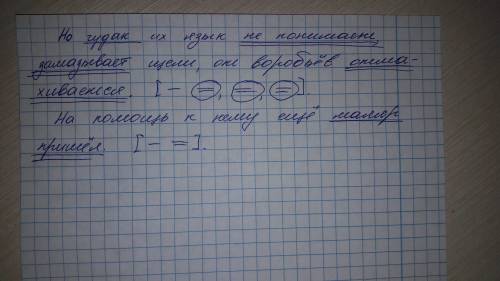 Но чудак их язык не понимает,
замазывает щели, от воробьёв отма-
хивается. [– =, =, =].
На помощь к нему ещё маляр
пришёл. [– =].